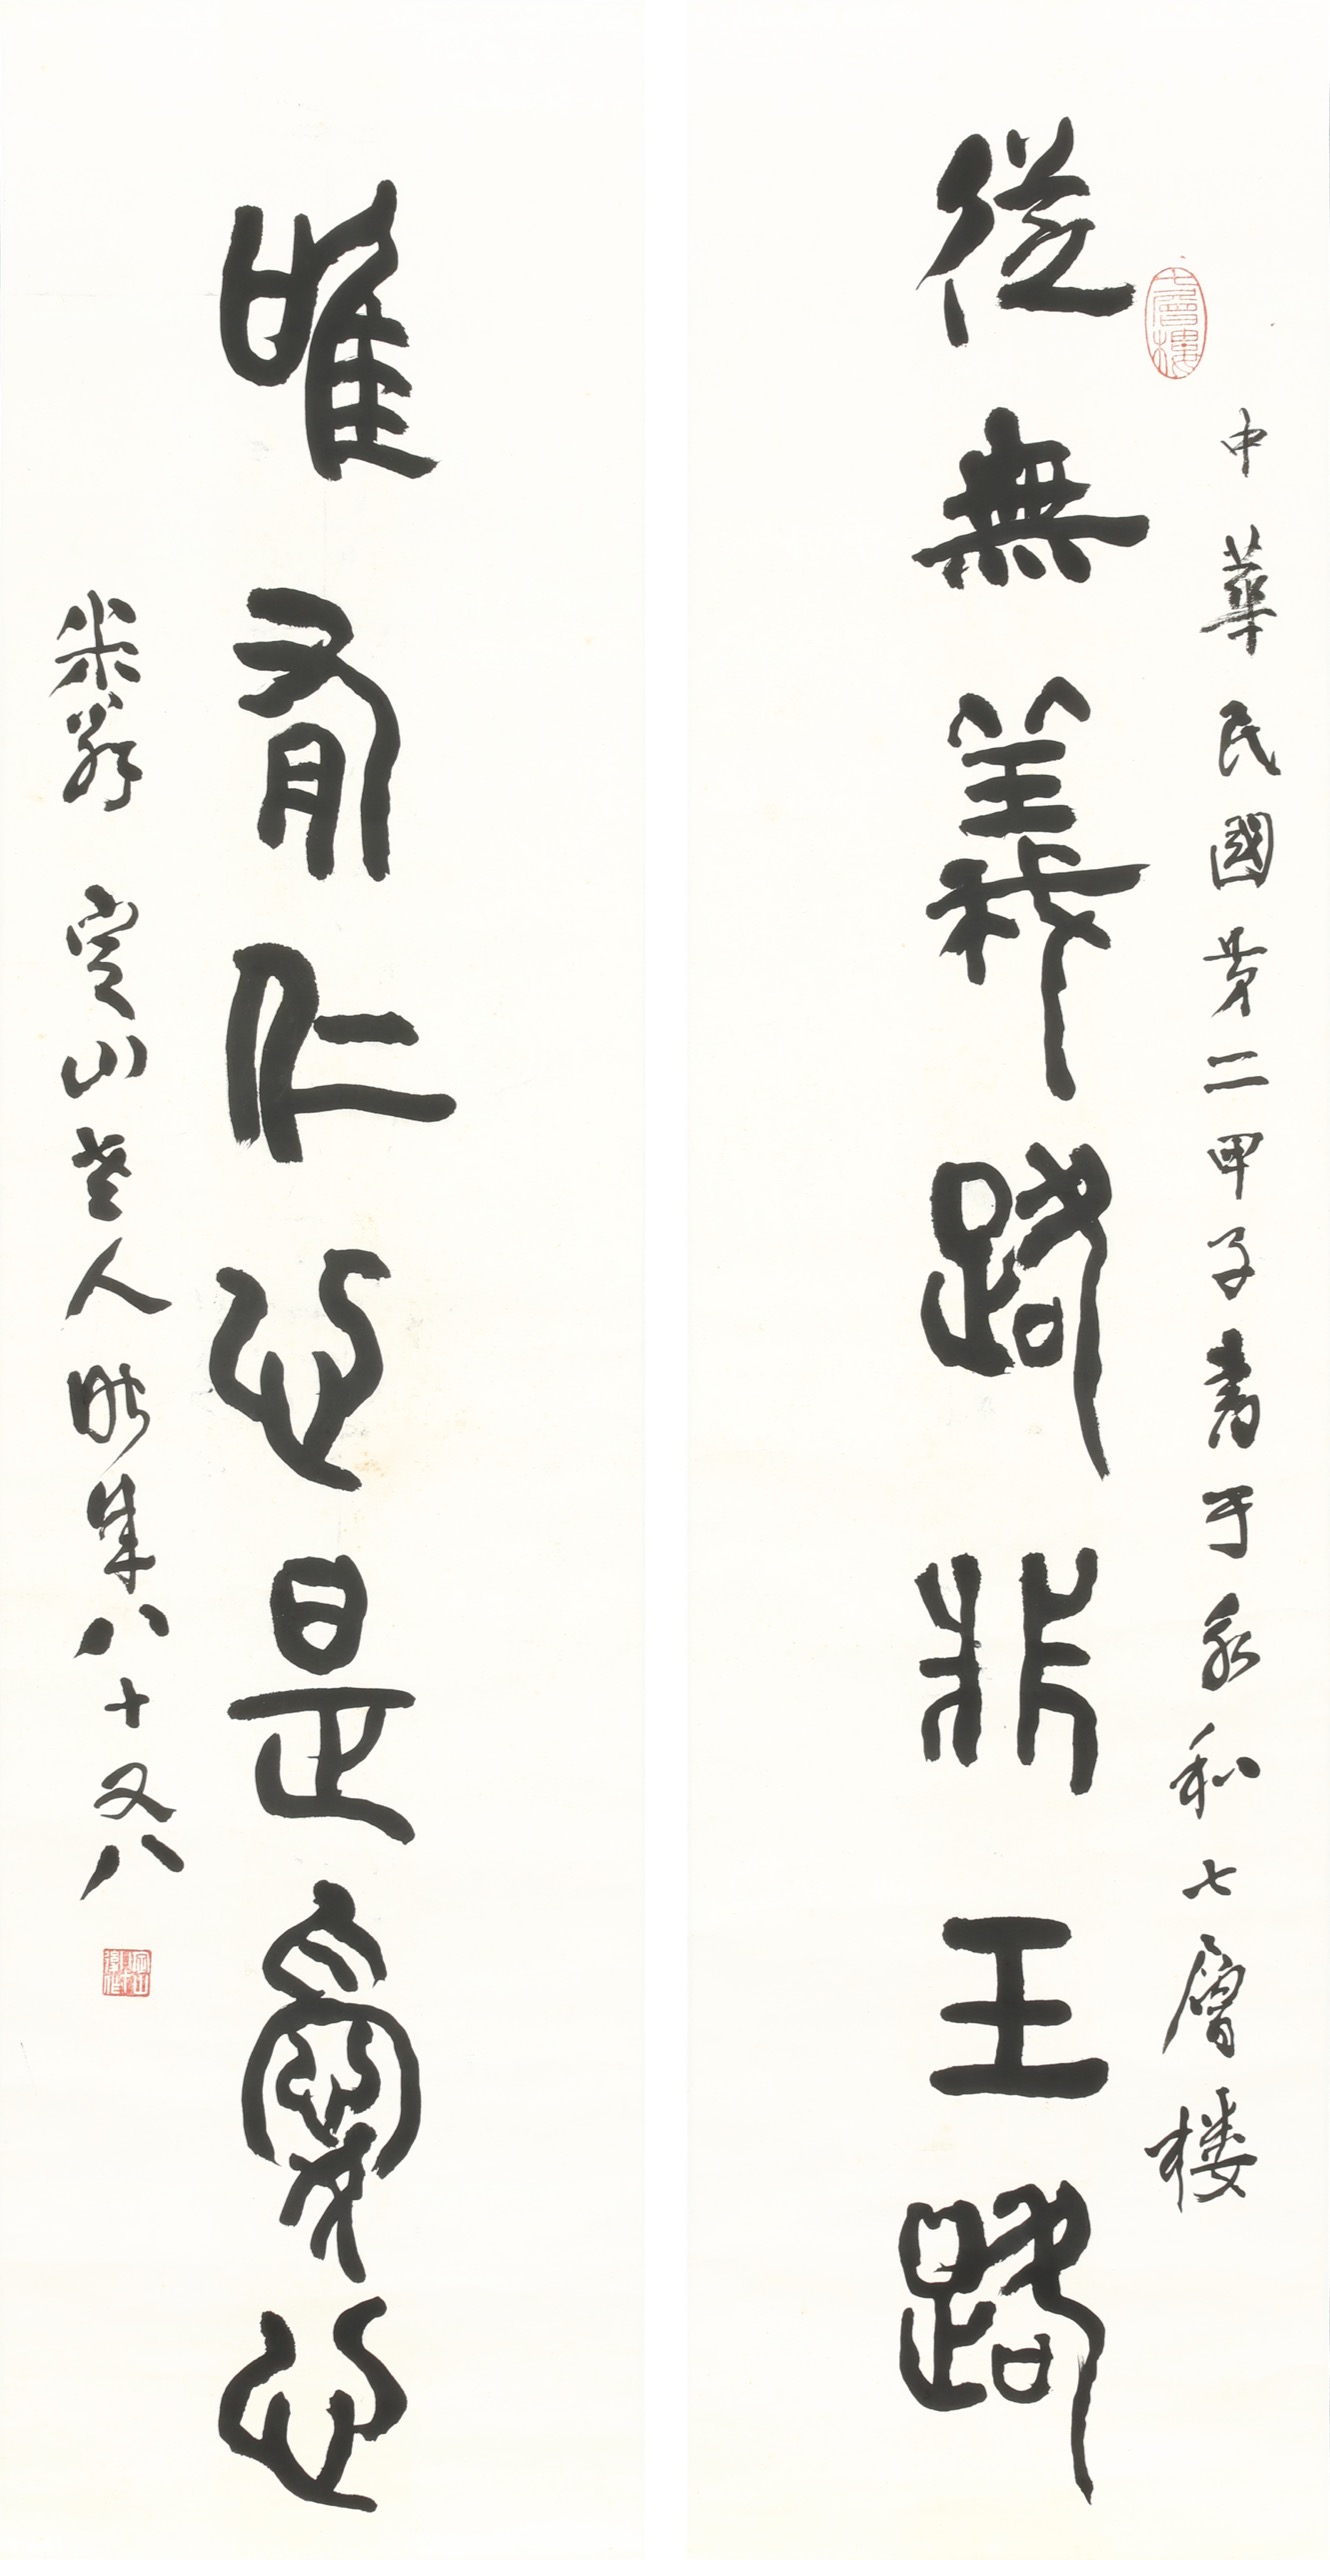 從無義路非王路
中華民國第二甲子書于永和七層楼
唯有仁心是愛心
定山老人時年八十又八
七層樓